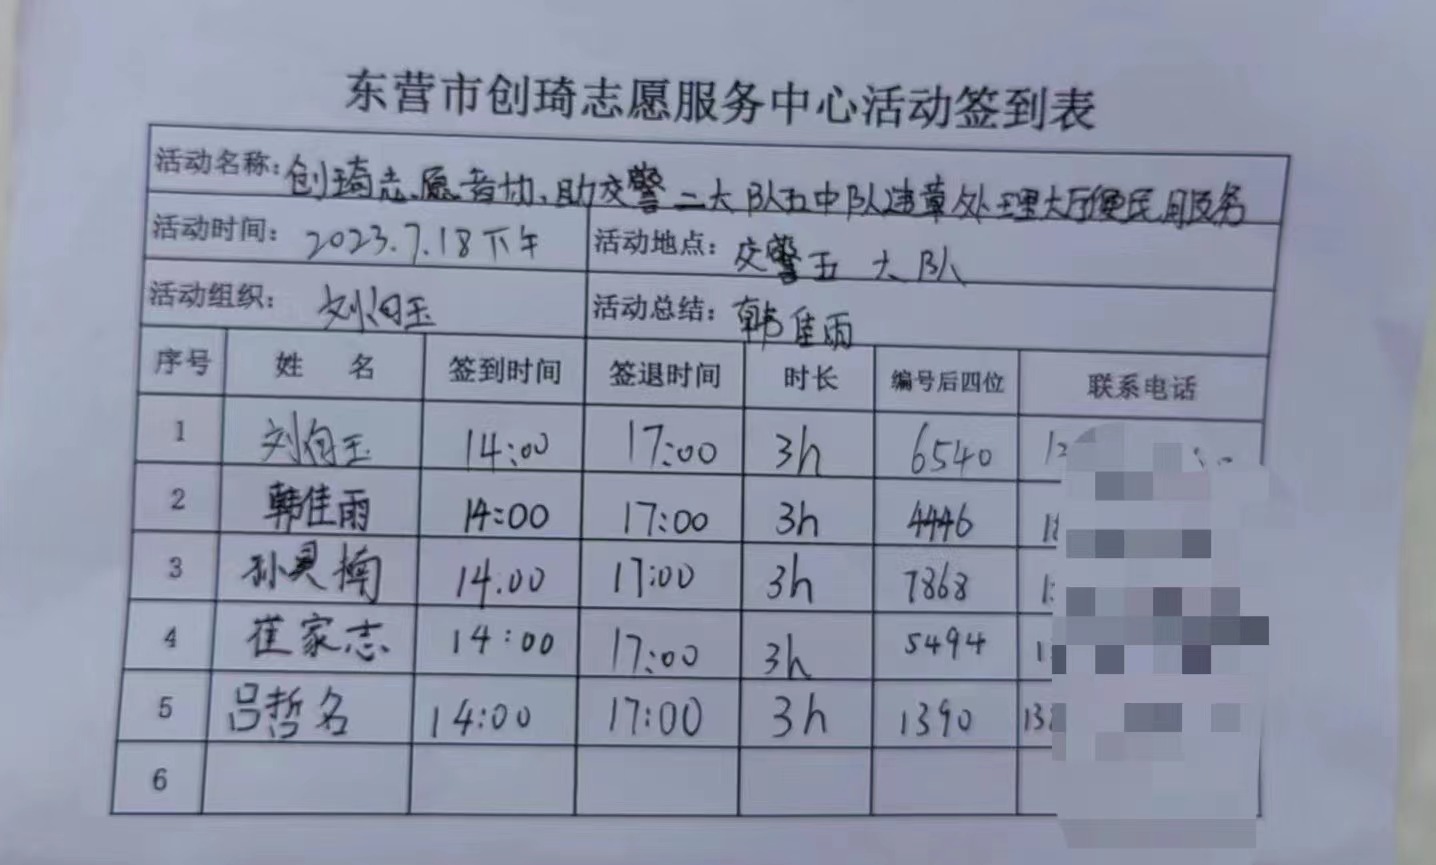 东营市创琦志愿服务中心活动签到表
活动名称: 创琦志愿者协助交警二大队五中队违章处理大厅便民服务
活动时间: 2023.7.18下午 活动地点: 交警五大队
活动组织: 刘向玉 活动总结: 韩佳雨
序号 姓 名 签到时间 签退时间 时长 编号后四位 联系电话
1 刘向玉 14:00 17:00 3h 6540
2 韩佳雨 14:00 17:00 3h 4446 18
3 孙昊楠 14.00 17:00 3h 7868
4 崔家志 14:00 17:00 3h 5494
5 吕哲名 14:00 17:00 3h 1390 138
6